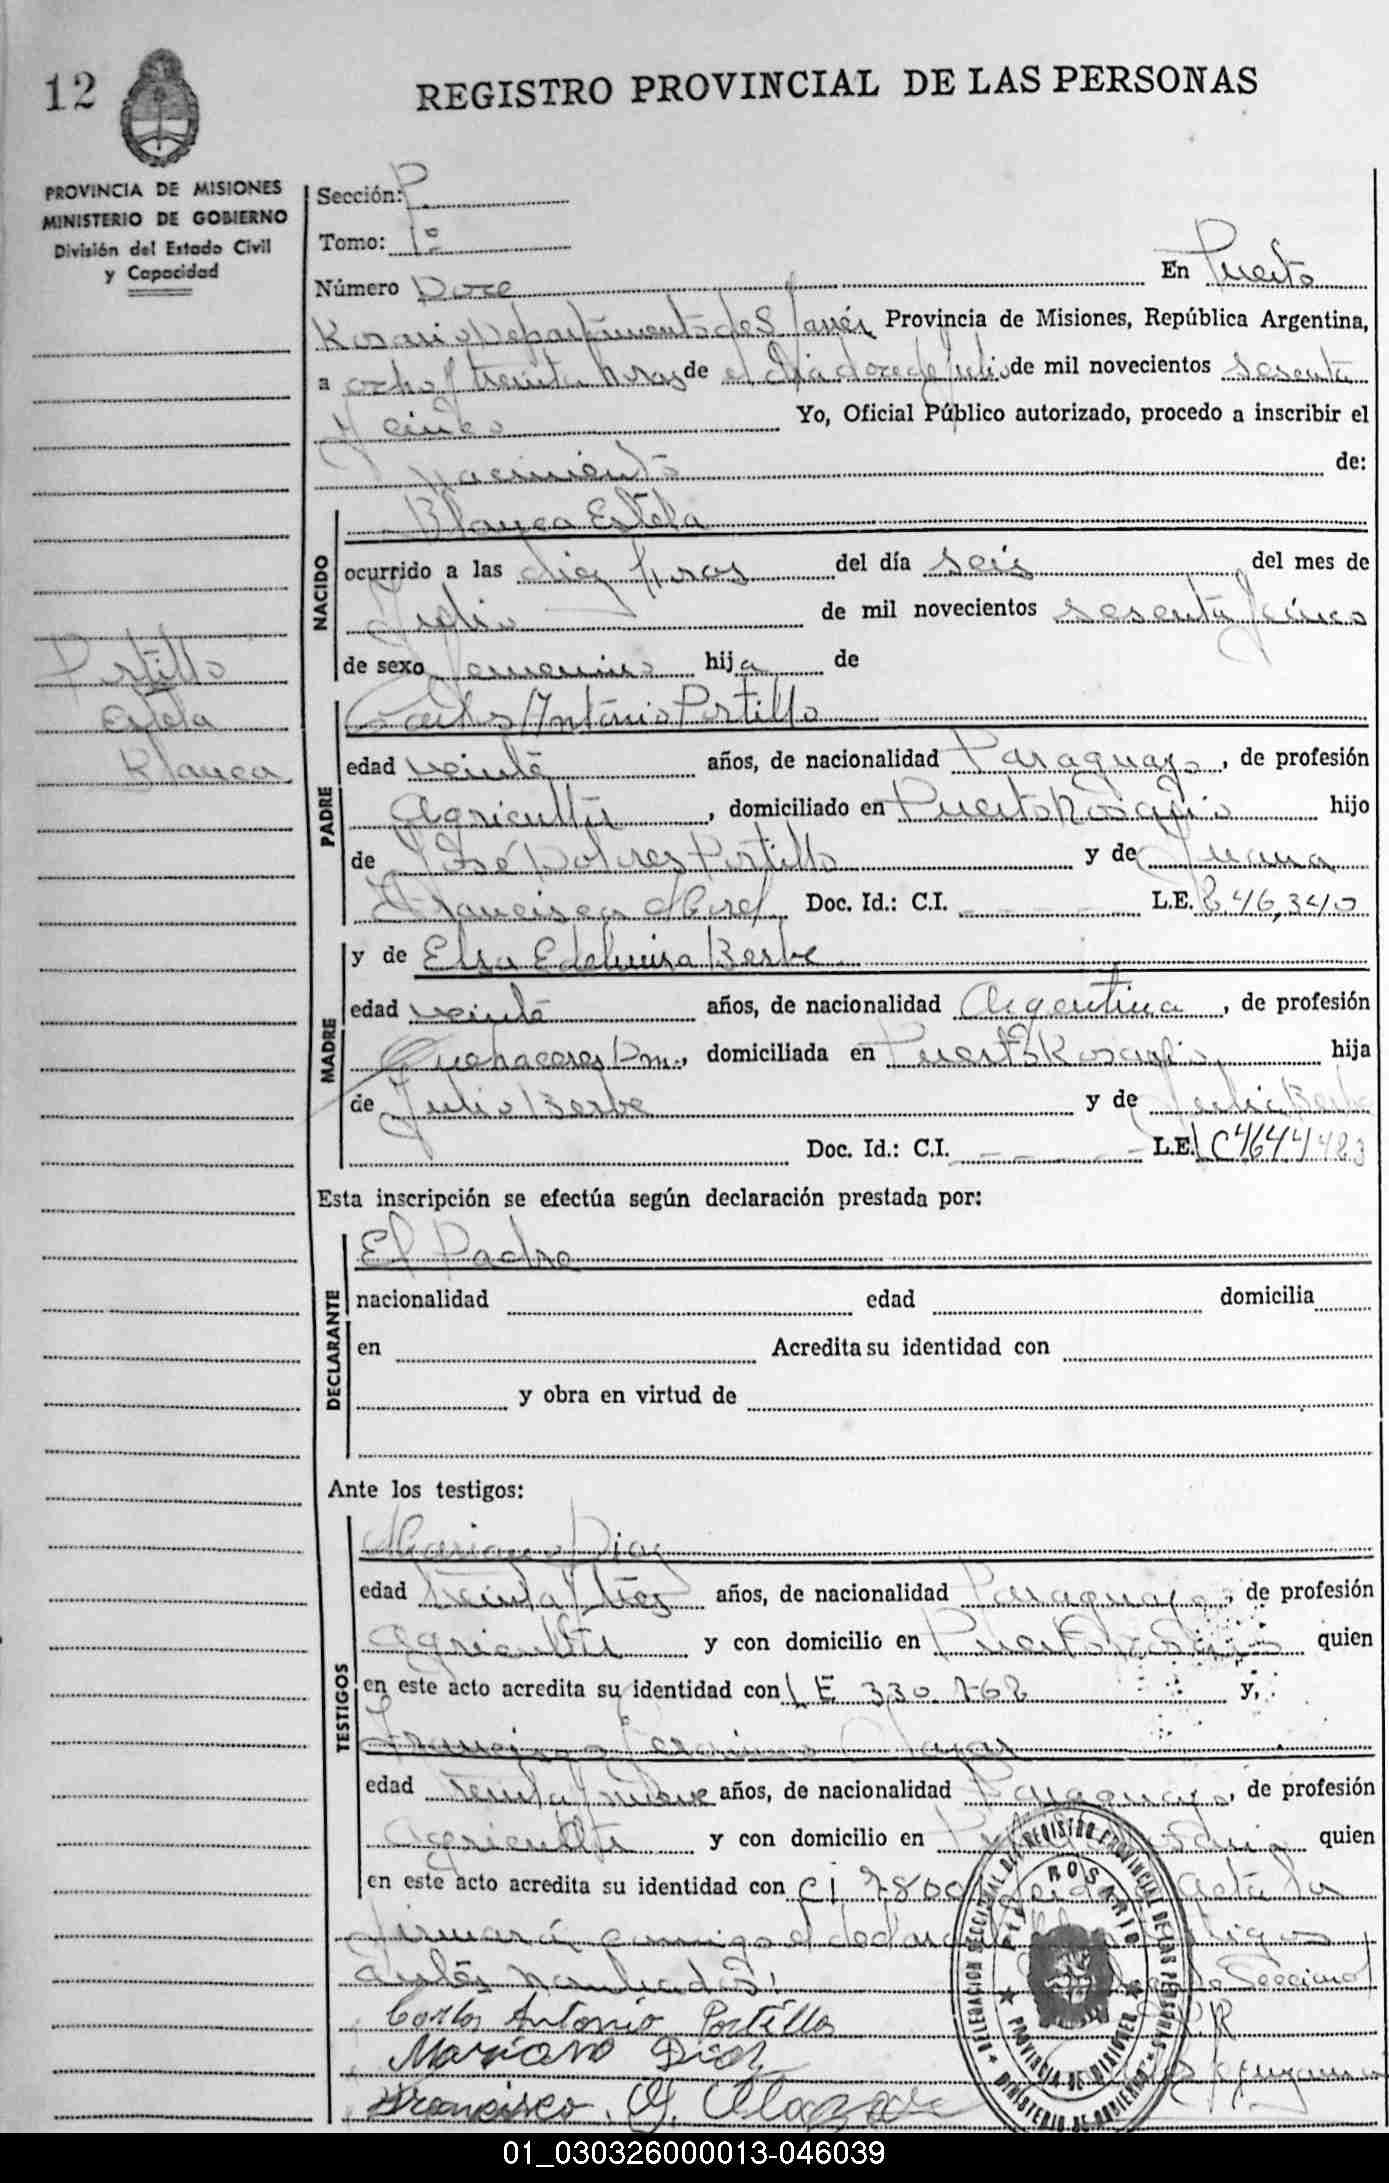 12
REGISTRO PROVINCIAL DE LAS PERSONAS
PROVINCIA DE MISIONES
MINISTERIO DE GOBIERNO
División del Estado Civil
y Capacidad
Sección: P.
Tomo: 1º
Número Doce En Puerto
Rosario Departamento de S Javier Provincia de Misiones, República Argentina,
a ocho y treinta horas de el dia doce de julio de mil novecientos sesenta
y cinco Yo, Oficial Público autorizado, procedo a inscribir el
nacimiento de:
NACIDO
Blanca Estela
ocurrido a las diez horas del día seis del mes de
Julio de mil novecientos sesenta y cinco
de sexo femenino hija de
Portillo
Estela
Blanca
PADRE
Carlos Antonio Portillo
edad veinte años, de nacionalidad Paraguayo, de profesión
Agricultor, domiciliado en Puerto Rosario hijo
de José Dolores Portillo y de Juana
Francisca Doc. Id.: C.I. L.E. 846,340
MADRE
y de Elsa Edelmira Berbe
edad veinte años, de nacionalidad Argentina, de profesión
Quehaceres Dom., domiciliada en Puerto Rosario hija
de Julio Berbe y de Berbe
Doc. Id.: C.I. L.E. C4644483
Esta inscripción se efectúa según declaración prestada por:
DECLARANTE
El Padre
nacionalidad edad domicilia
en Acredita su identidad con
y obra en virtud de
Ante los testigos:
TESTIGOS
Mariano Diaz
edad treinta y tres años, de nacionalidad Paraguayo, de profesión
Agricultor y con domicilio en Puerto Rosario quien
en este acto acredita su identidad con L E 330.768 y,
Francisco Geronimo Olazar
edad treinta y nueve años, de nacionalidad Paraguayo, de profesión
Agricultor y con domicilio en quien
en este acto acredita su identidad con CI 7800 Acta la
firmará conmigo el
antes nombrados.
Carlos Antonio Portillo
Mariano Diaz
Francisco. G. Olazar
DELEGACION SECCIONAL DEL REGISTRO PROVINCIAL DE LAS PERSONAS
PTO ROSARIO
PROVINCIA DE MISIONES
MINISTERIO DE GOBIERNO
01_030326000013-046039